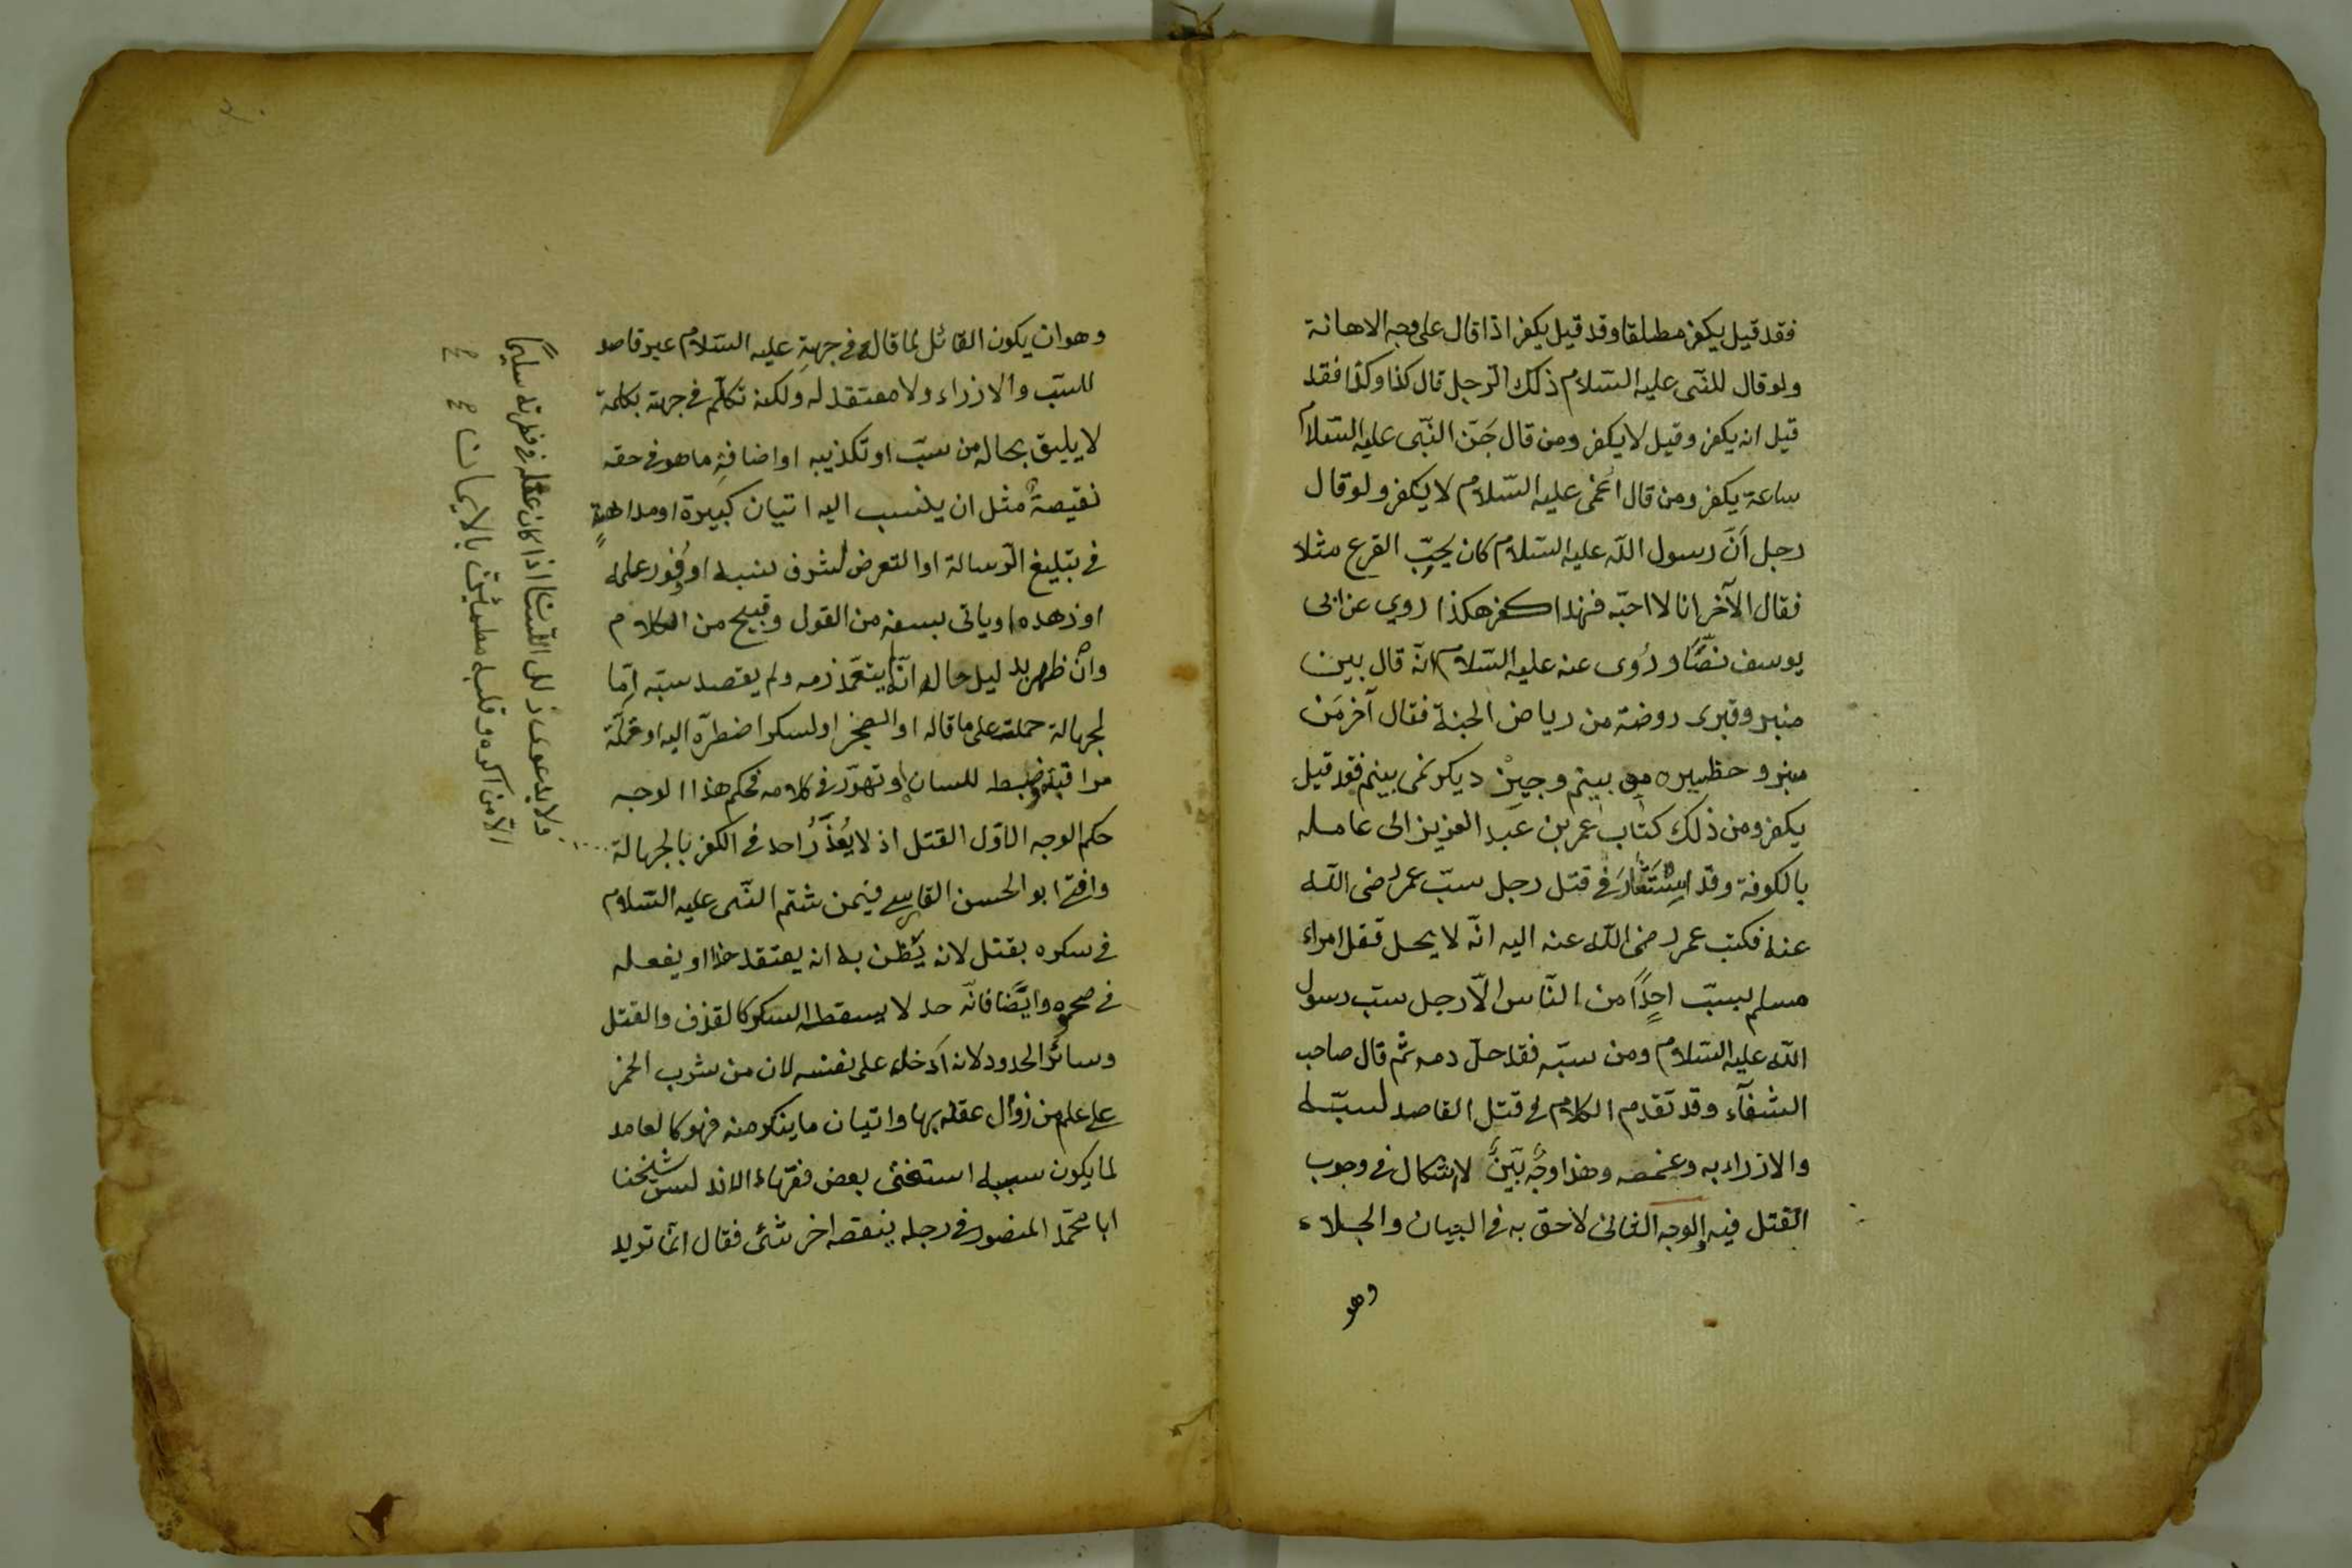 فقد قيل يكفر مطلقا وقد قيل يكفر اذا قال على وجه الاهانة
ولو قال للنبى عليه السّلام ذلك الرّجل قال كذا وكذا فقد
قيل انه يكفر وقيل لا يكفر ومن قال جَنّ النّبى عليه السّلام
ساعة يكفر ومن قال اُغمى عليه السّلام لا يكفر ولو قال
رجل أنّ رسول اللّه عليه السّلام كان يحبّ القرع مثلا
فقال الآخر انا لا احبّه فهذا كفر هكذا روي عن ابى
يوسف نصًّا ورُوى عنه عليه السّلام انّه قال بين
منبر وقبرى روضة من رياض الجنة فقال آخر مَن
منبر وحظيره مى بينم وجيز ديكر نمى بينم فقد قيل
يكفر ومن ذلك كتاب عمر بن عبد العزيز الى عامله
بالكوفة وقد استشار فى قتل رجل سبّ عمر رضى اللّه
عنه فكتب عمر رضى اللّه عنه اليه انّه لا يحل قتل امراء
مسلم بسبّ احدٍ من النّاس الّا رجل سبّ رسول
اللّه عليه السّلام ومن سبّه فقد حلّ دمه ثم قال صاحب
الشفآء وقد تقدم الكلام فى قتل القاصد لسبّه
والازراء به وغمصه وهذا وجهٌ بَيّنٌ لا اشكال فى وجوب
القتل فيه والوجه الثانى لاحق به فى البيان والجلاء
وهو
وهو ان يكون القائل لما قال فى جهةِ عليه السّلام غير قاصد
للسّب والازراء ولا معتقد له ولكنه تكلّم فى جهته بكلمة
لا يليق بحاله من سبّ او تكذيبه او اضافةِ ما هو فى حقه
نقيصةٌ مثل ان ينسب اليه اتيان كبيرة او مداهنةٍ
فى تبليغ الرّسالة او التعرض لشرف نسبه او وُفور علمه
او زهده او ياتى بسفه من القول وقبيح من الكلام
وان ظهر بدليل حاله انّه لم يتعمّد ذمه ولم يقصد سبّه إمّا
لجهالة حملته على ما قاله او الضجر او لسكر اضطرّه اليه او قلّة
مراقبة وضبط للسان او تهوّر فى كلامه فحكم هذا الوجه
حكم الوجه الاوّل القتل اذ لا يُعذَرُ احد فى الكفر بالجهالة
وافتى ابو الحسن القابسى فيمن شتم النّبى عليه السّلام
فى سكره بقتل لانه يُظن به انه يعتقد هذا او يفعله
فى صحوه وايضًا فانّه حد لا يسقطه السكر كالقذف والقتل
وسائر الحدود لانه أدخله على نفسه لان من شرب الخمر
على علم من زوال عقله بها واتيان ما ينكر منه فهو كالعامد
لما يكون سببه استفتى بعض فقهاء الاندلس شيخنا
ابا محمّد المنصور فى رجل ينقصه اخر شئ فقال انما تريد
ولا بدعوى زلل اللّسان اذا كان عقله فى فطرته سليمًا
الّا من اكره وقلبه مطمئن بالايمان